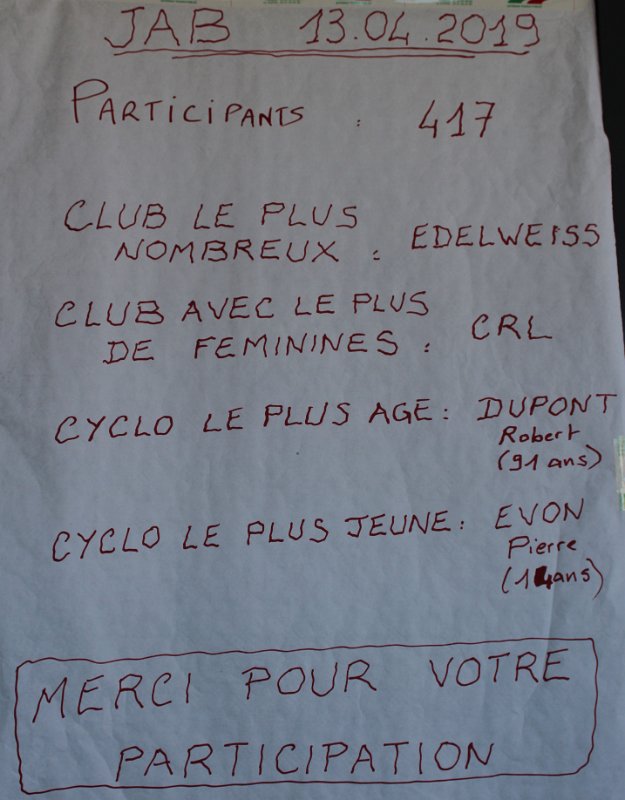 JAB 13.04.2019
PARTICIPANTS : 417
CLUB LE PLUS
NOMBREUX : EDELWEISS
CLUB AVEC LE PLUS
DE FEMININES : CRL
CYCLO LE PLUS AGE : DUPONT
Robert
(91 ans)
CYCLO LE PLUS JEUNE : EVON
Pierre
(14ans)
MERCI POUR VOTRE
PARTICIPATION